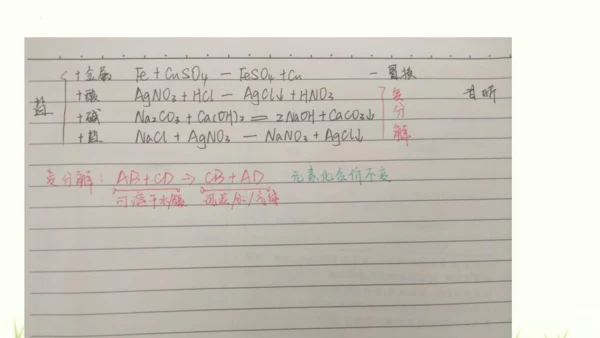 盐 +金属 Fe + CuSO4 — FeSO4 + Cu — 置换
+酸 AgNO3 + HCl — AgCl↓ + HNO3 复
+碱 Na2CO3 + Ca(OH)2 == 2NaOH + CaCO3↓ 分
+盐 NaCl + AgNO3 — NaNO3 + AgCl↓ 解
复分解: AB + CD → CB + AD 元素化合价不变
可溶于水/酸 沉淀/水/气体